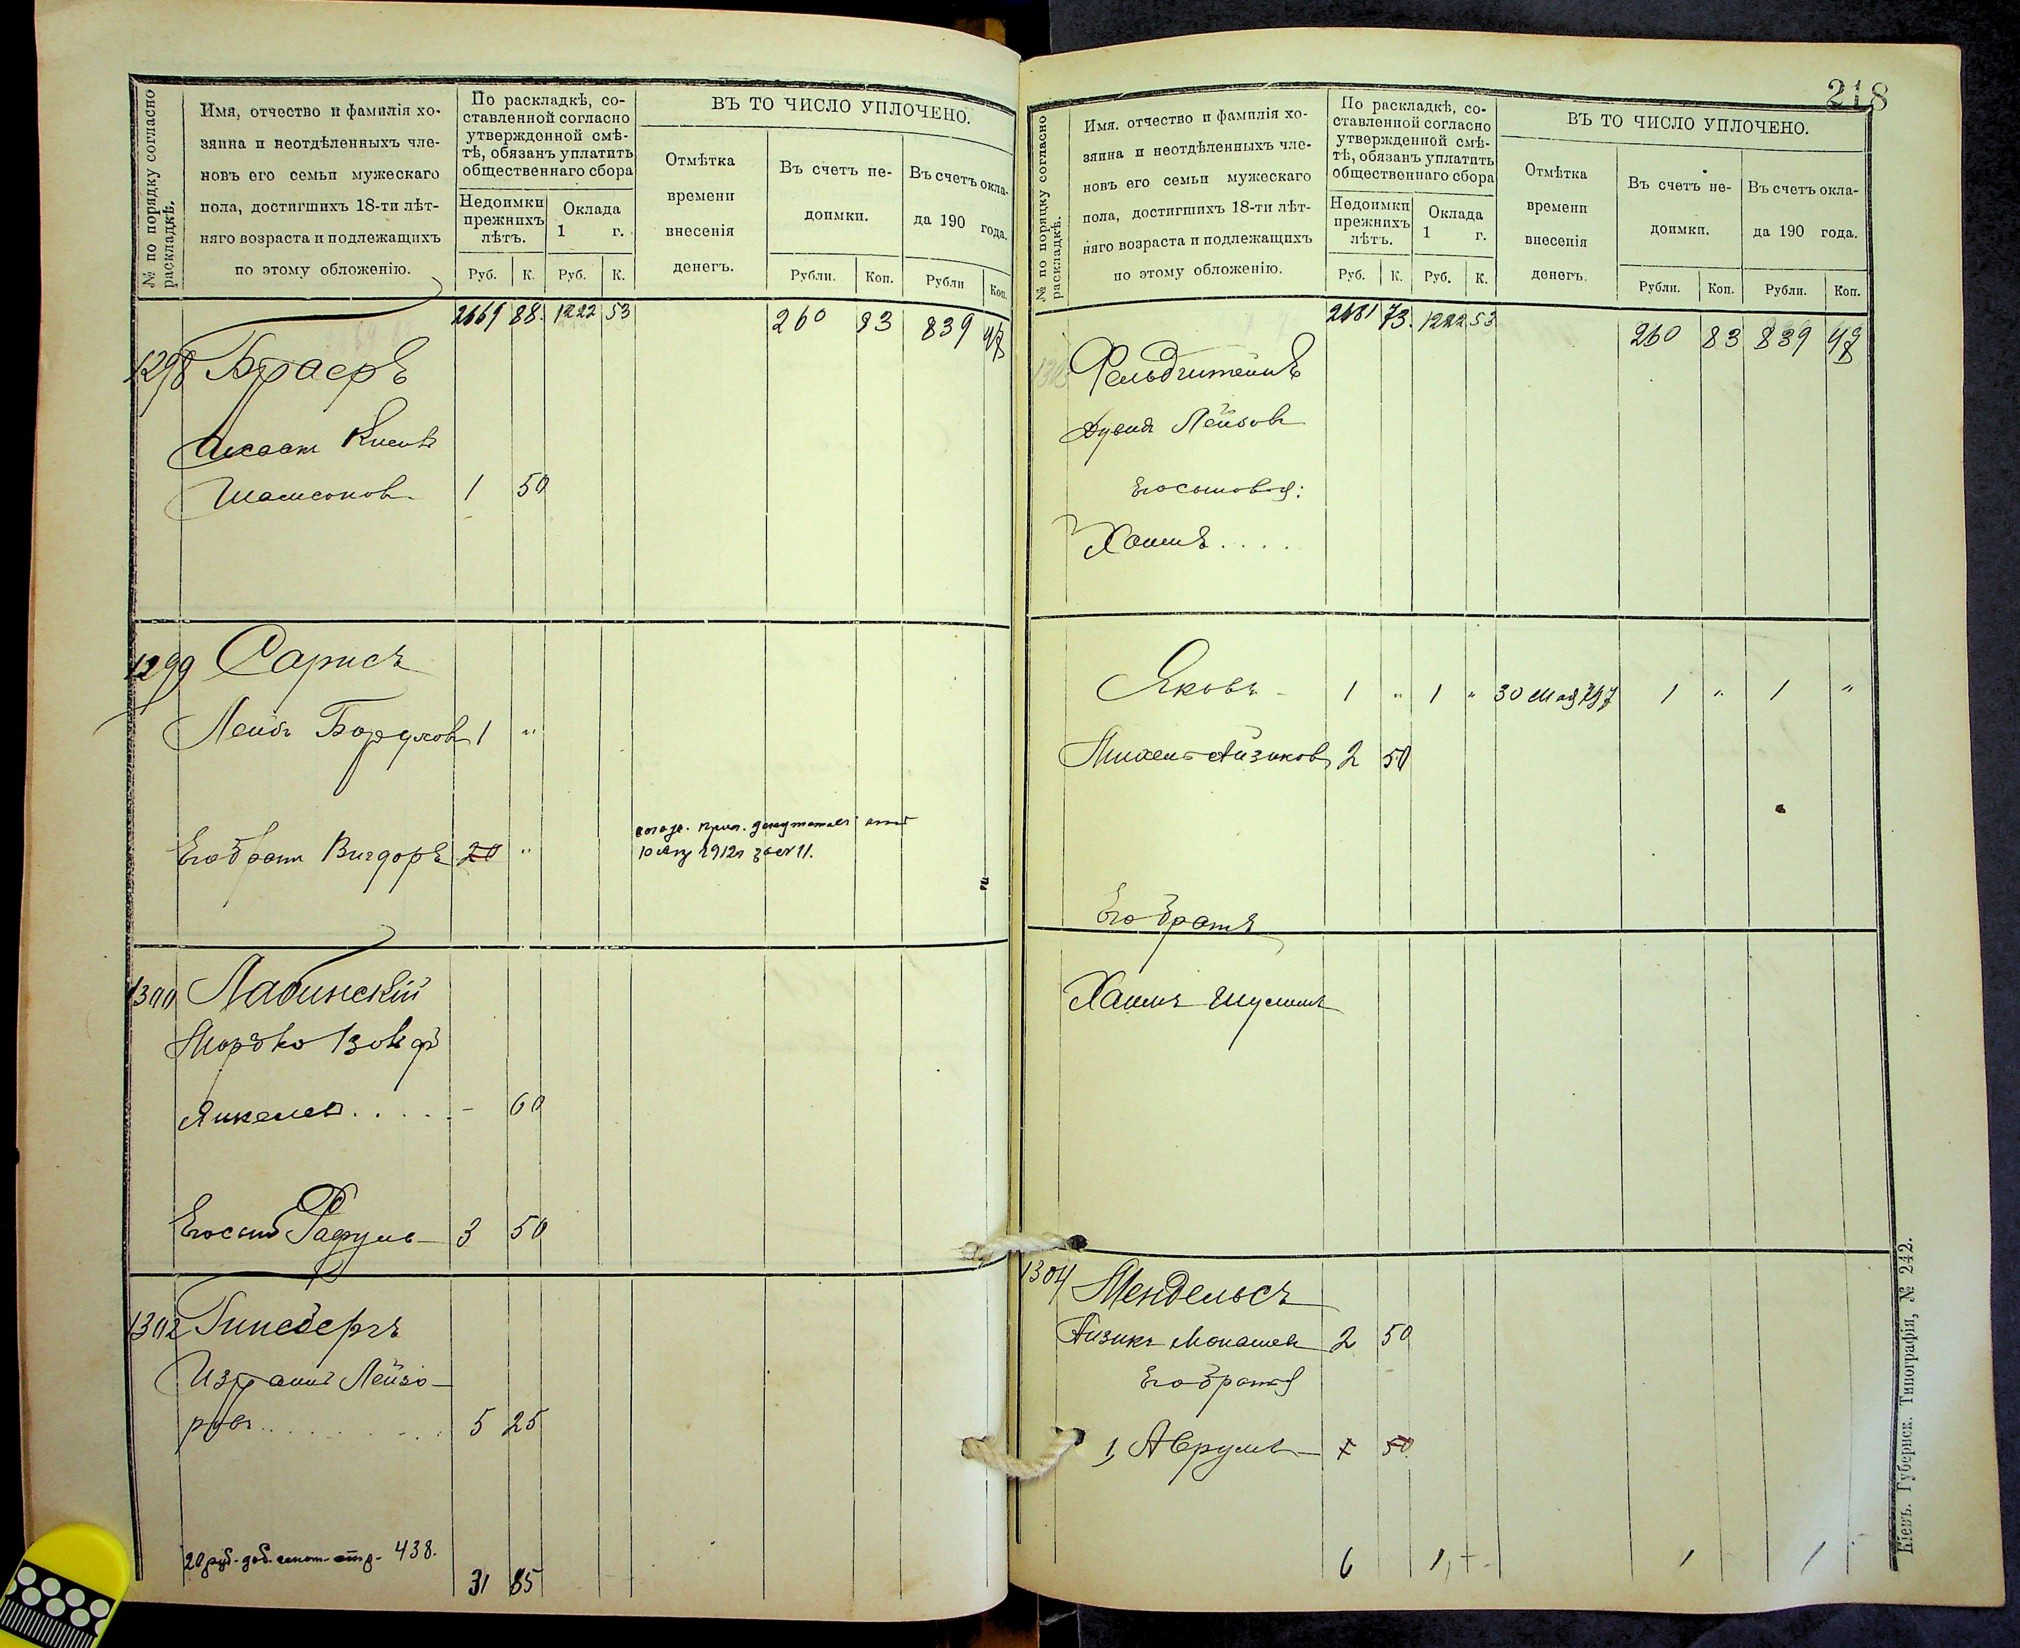 № по порядку согласно раскладкѣ.
Имя, отчество и фамилія хо-
зяина и неотдѣленныхъ чле-
новъ его семьи мужескаго
пола, достигшихъ 18-ти лѣт-
няго возраста и подлежащихъ
по этому обложенію.
По раскладкѣ, со-
ставленной согласно
утвержденной смѣ-
тѣ, обязанъ уплатить
общественнаго сбора
Недоимки
прежнихъ
лѣтъ.
Оклада
1 г.
Руб. К. Руб. К.
ВЪ ТО ЧИСЛО УПЛОЧЕНО.
Отмѣтка
времени
внесенія
денегъ.
Въ счетъ не-
доимки.
Рубли. Коп.
Въ счетъ окла-
да 190 года.
Рубли Коп.
2669 88. 1222 53 260 83 839 48
1298 Браеръ
Кисилъ
Шамсоновъ 1 50
1299 Сарисъ
Лейбъ Боруховъ 1 "
Его братъ Вигдоръ 20 "
1300 Лабинскій
Мордко Вольфъ
Янкелевъ . . . . . - 60
Его сынъ Рафулъ 3 50
1302 Гинсбергъ
Израиль Лейзо-
ровъ . . . . . . . . 5 25
20 руб. доб. 438.
31 85
218
№ по порядку согласно раскладкѣ.
Имя. отчество и фамилія хо-
зяина и неотдѣленныхъ чле-
новъ его семьи мужескаго
пола, достигшихъ 18-ти лѣт-
няго возраста и подлежащихъ
по этому обложенію.
По раскладкѣ, со-
ставленной согласно
утвержденной смѣ-
тѣ, обязанъ уплатить
общественнаго сбора
Недоимки
прежнихъ
лѣтъ.
Оклада
1 г.
Руб. К. Руб. К.
ВЪ ТО ЧИСЛО УПЛОЧЕНО.
Отмѣтка
времени
внесенія
денегъ.
Въ счетъ не-
доимки.
Рубли. Коп.
Въ счетъ окла-
да 190 года.
Рубли. Коп.
2681 73. 1222 53 260 83 839 48
1303 Фельдштейнъ
Дувидъ Лейбовъ
Его сыновья:
Хаимъ . . . .
Яковъ - 1 " 1 " 30 Мая 1 " 1 "
Михель Айзиковъ 2 50
Его братъ
Хаимъ Шулимъ
1304 Мендельсъ
Айзикъ Монашевъ 2 50
Его братья
1, Аврумъ 1 50
6 1, - 1 1
Кіевъ. Губернск. Типографія, № 242.